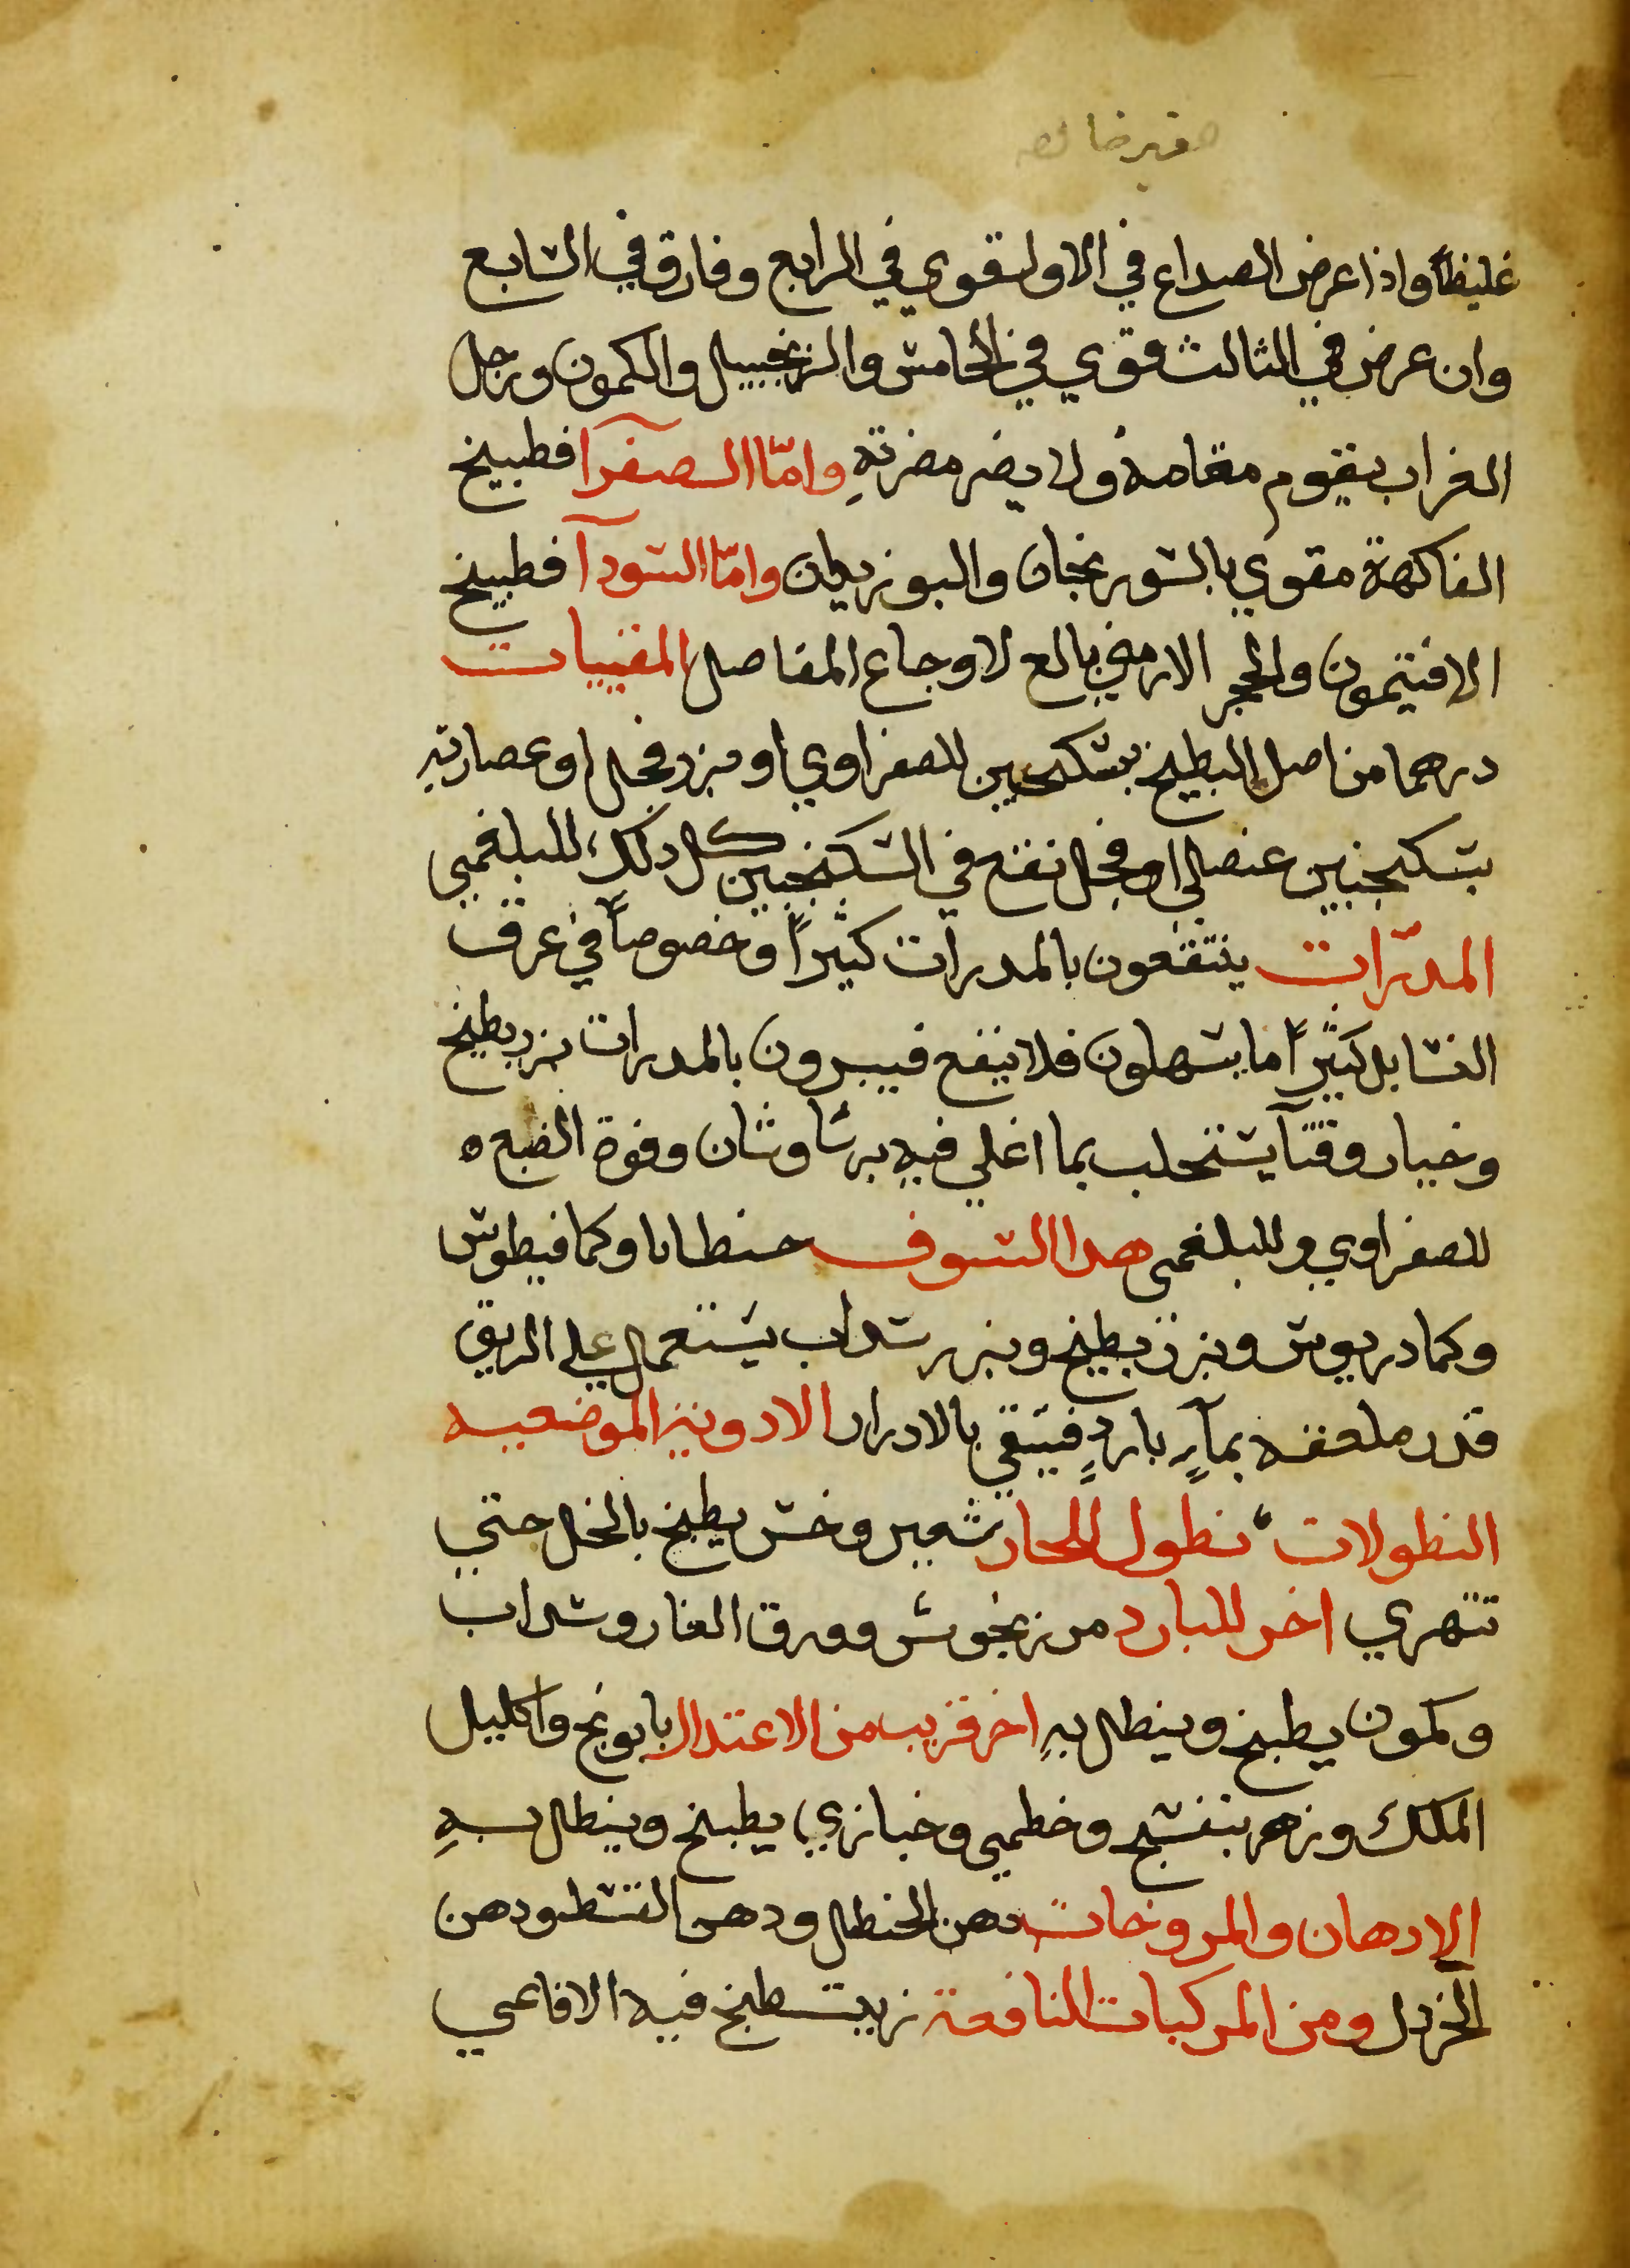 غليظاً واذا عرض الصداع في الاول قوي في الرابع وفارق في السابع
وان عرض في الثالث قوي في الخامس والزنجبيل والكمون ورجل
الغراب يقوم مقامه ولا يضر مضرته واما الصفرآ فطبيخ
الفاكهة مقوي بالسورنجان والبوزيدان واما السودآ فطبيخ
الافتيمون والحجر الارمني بالع لاوجاع المفاصل المقييات
درهما من اصل البطيخ بسكنجبين للصفراوي او بزر فجل او عصارته
بسكنجبين عنصلي او فجل نقع في السكنجبين كل ذلك للبلغمي
المدرّات ينتفعون بالمدرات كثيراً وخصوصاً في عرق
النسا بل كثيراً ما يسهلون فلا ينفع فيبرون بالمدرات بزر بطيخ
وخيار وقثآ يستحلب بما اغلي فيه برساوشان وفوة الضبع ه
للصفراوي وللبلغمي هدا السفوف جنطانا وكمافيطوس
وكمادريوس وبزر بطيخ وبزر سداب يستعمل علي الريق
قدر ملعقه بمآءٍ باردٍ فينقي بالادرار الادوية الموضعيه
النطولات نطول للحار شعير وخس يطبخ بالخل حتي
تتهري اخر للبارد مرزنجوش وورق الغار وسداب
وكمون يطبخ وينطل به اخر قريب من الاعتدال بابونج واكليل
الملك وزهر بنفسج وخطمي وخبازي يطبخ وينطل به
الادهان والمروخات دهن الحنظل ودهن القسط ودهن
الخردل ومن المركبات النافعة زيت طبخ فيه الافاعي